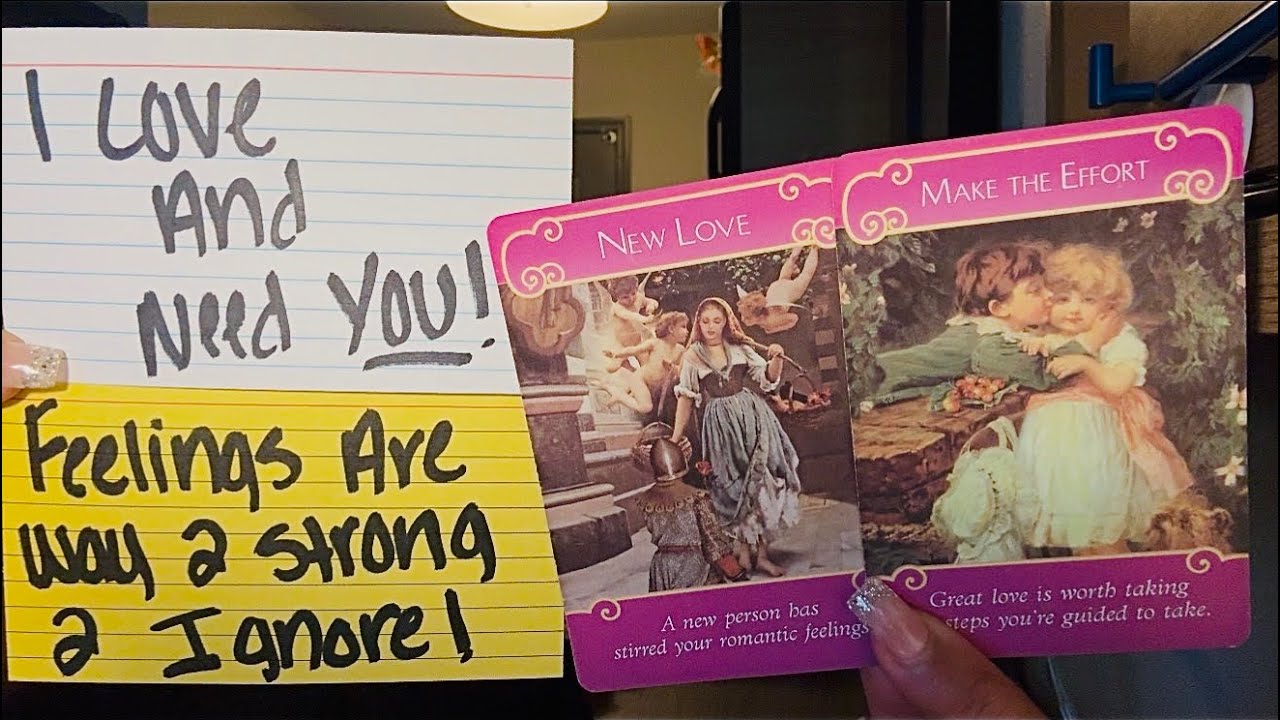 I Love
And
Need YOU!
Feelings Are
way 2 strong
2 Ignore!
NEW LOVE
A new person has
stirred your romantic feelings
MAKE THE EFFORT
Great love is worth taking
steps you're guided to take.